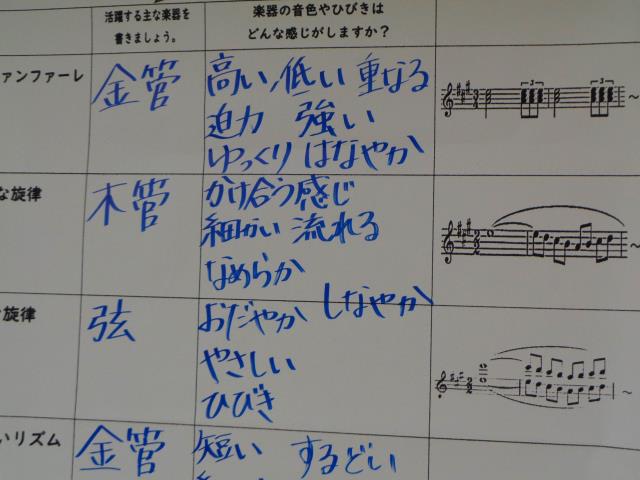 活躍する主な楽器を
書きましょう。
楽器の音色やひびきは
どんな感じがしますか？
ァンファーレ
金管
高い、低い 重なる
迫力 強い
ゆっくり はなやか
な旋律
木管
かけ合う感じ
細かい 流れる
なめらか
旋律
弦
おだやか しなやか
やさしい
ひびき
いリズム
金管
短い するどい